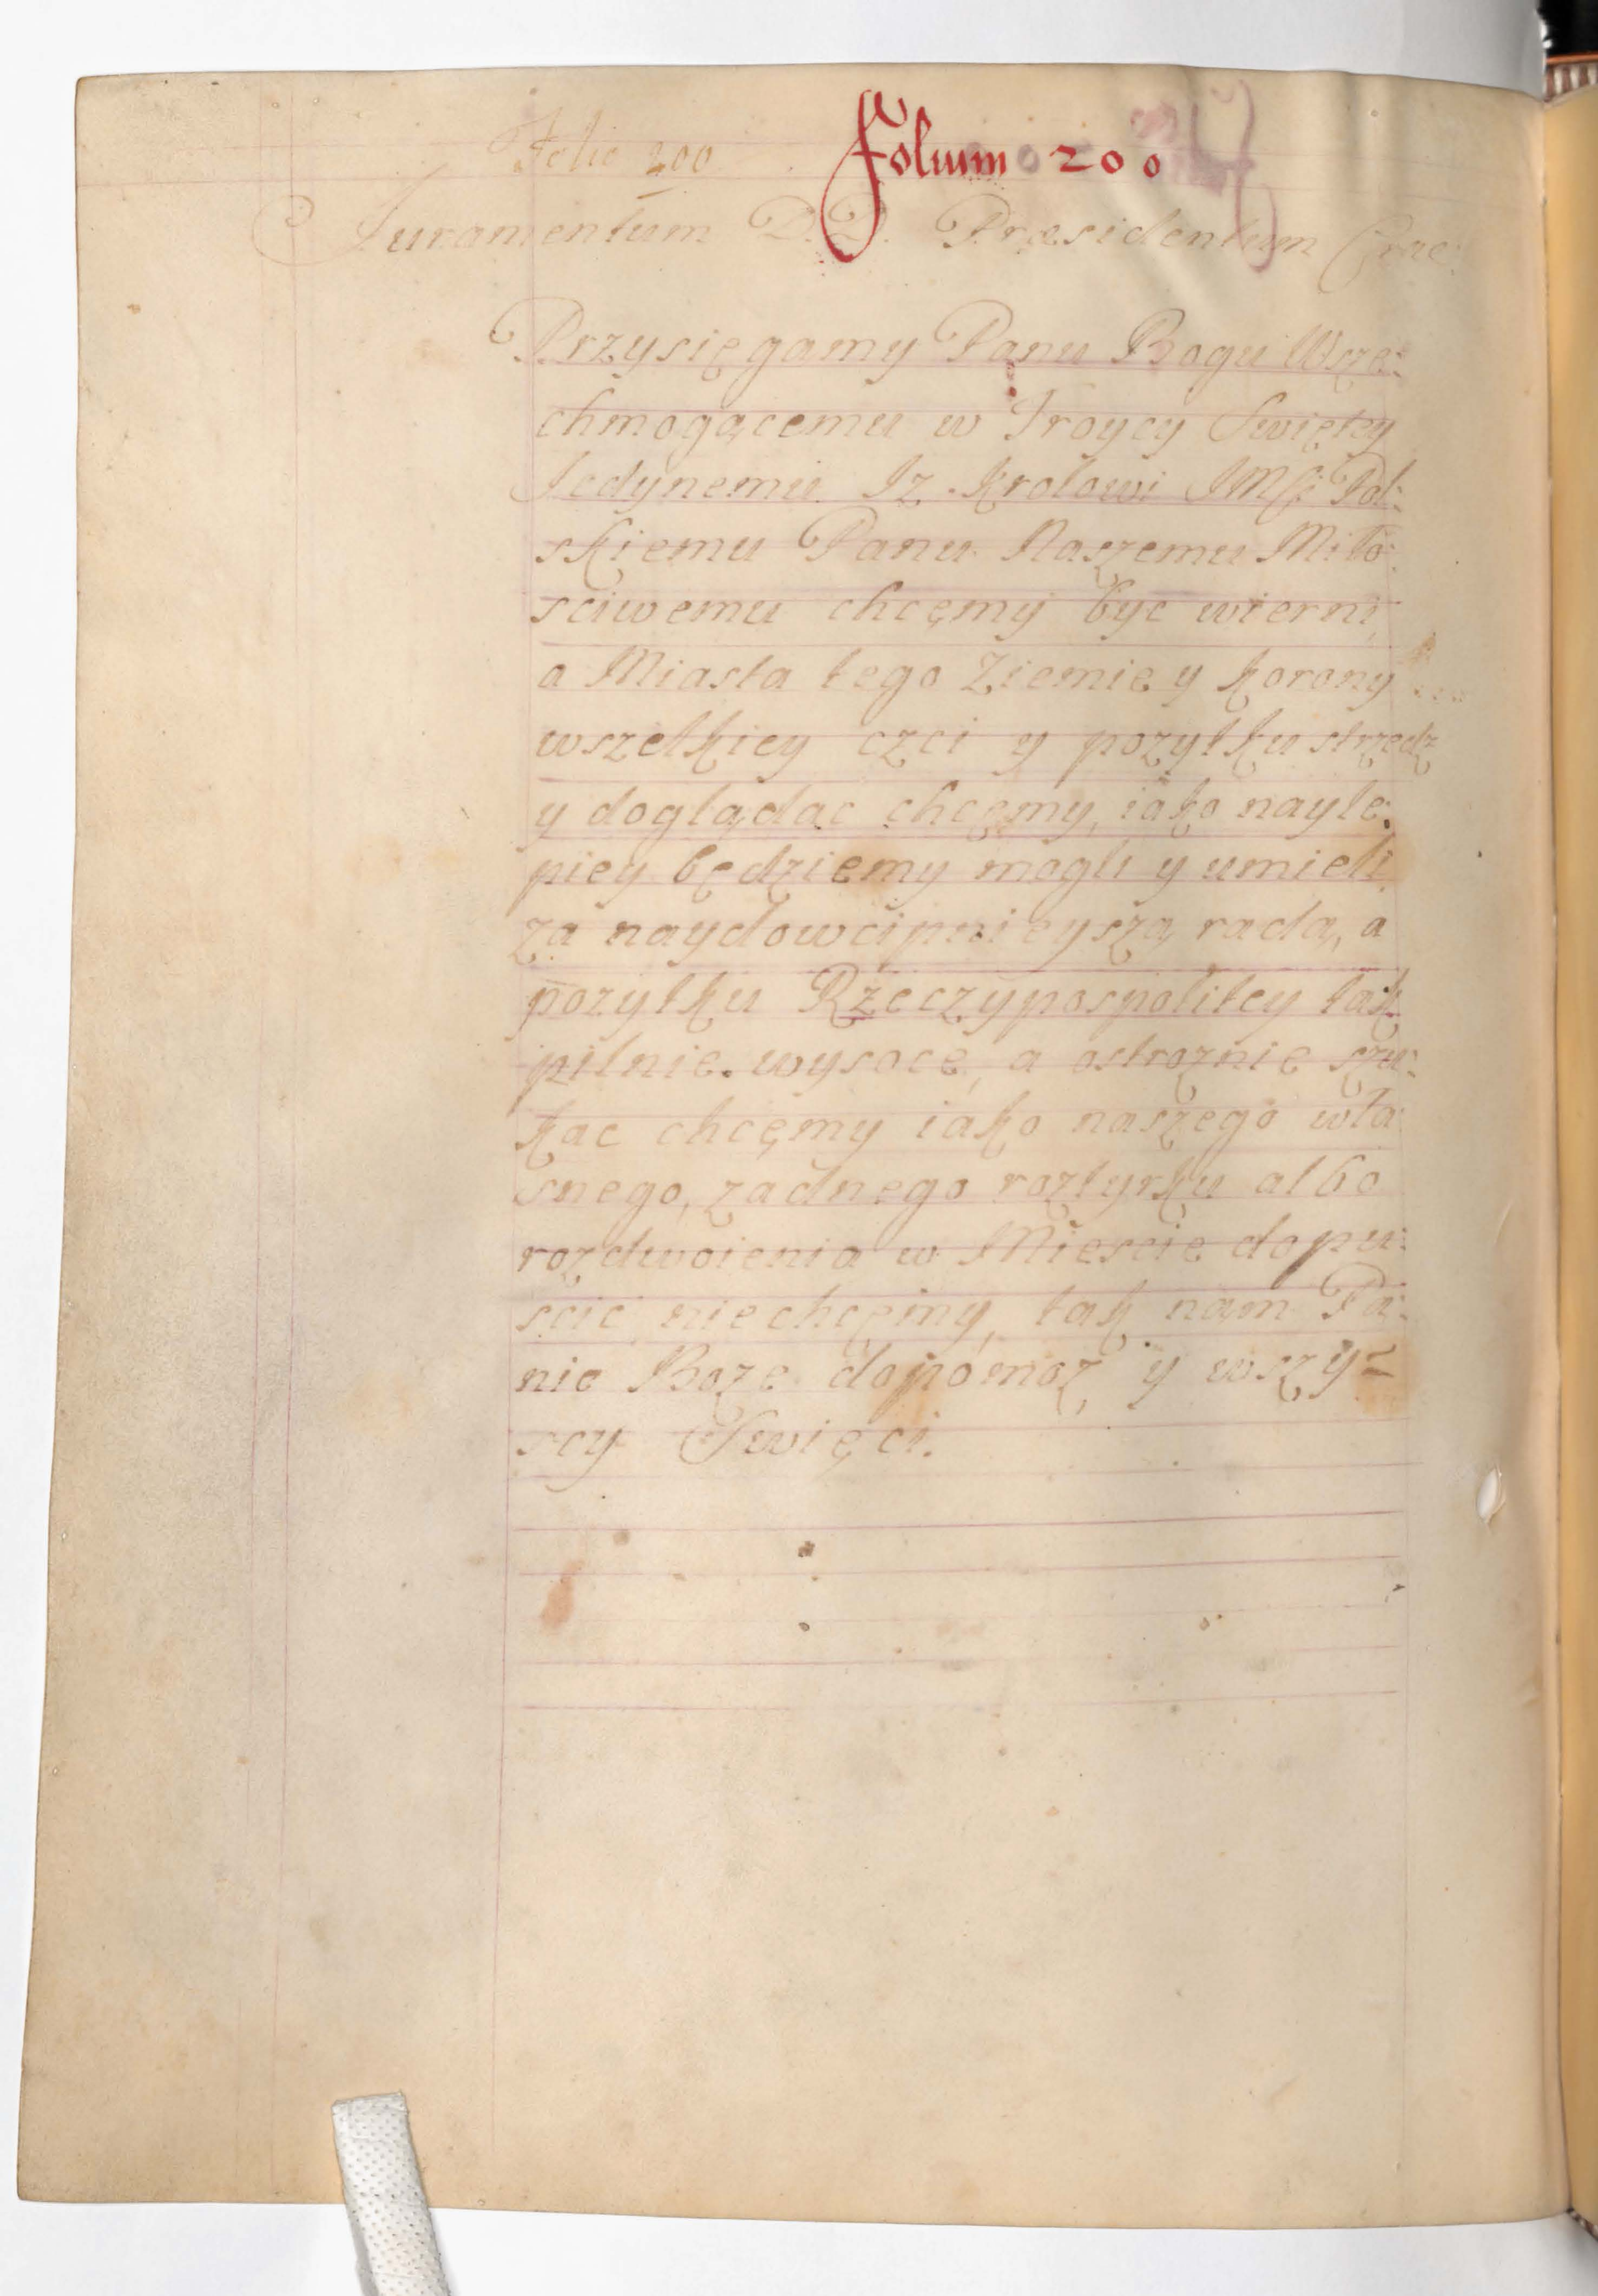 Folio 200 Folium 200
Juramentum D.D. Præsidentum Crac:
Przysięgamy Panu Bogu Wsze:
chmogącemu w Troycy Swiętey
Jedynemu. Iz Krolowi JMSci Pol:
skiemu Panu Naszemu Miło:
sciwemu chcęmy byc wierni,
a Miasta tego Ziemie y Korony
wszelkiey czci y pozytku strzedz
y doglądac chcęmy, iako nayle:
piey będziemy mogli y umieli
za naydowcipnieyszą radą, a
pozytku Rzeczypospolitey tak
pilnie. wysoce, a ostroznie szu:
kac chcęmy iako naszego wła:
snego, zadnego roztyrku albo
rozdwoienia w Miescie dopu:
scic niechcęmy, tak nam Pa:
nie Boze dopomoz y wszy=
scy Swięci.